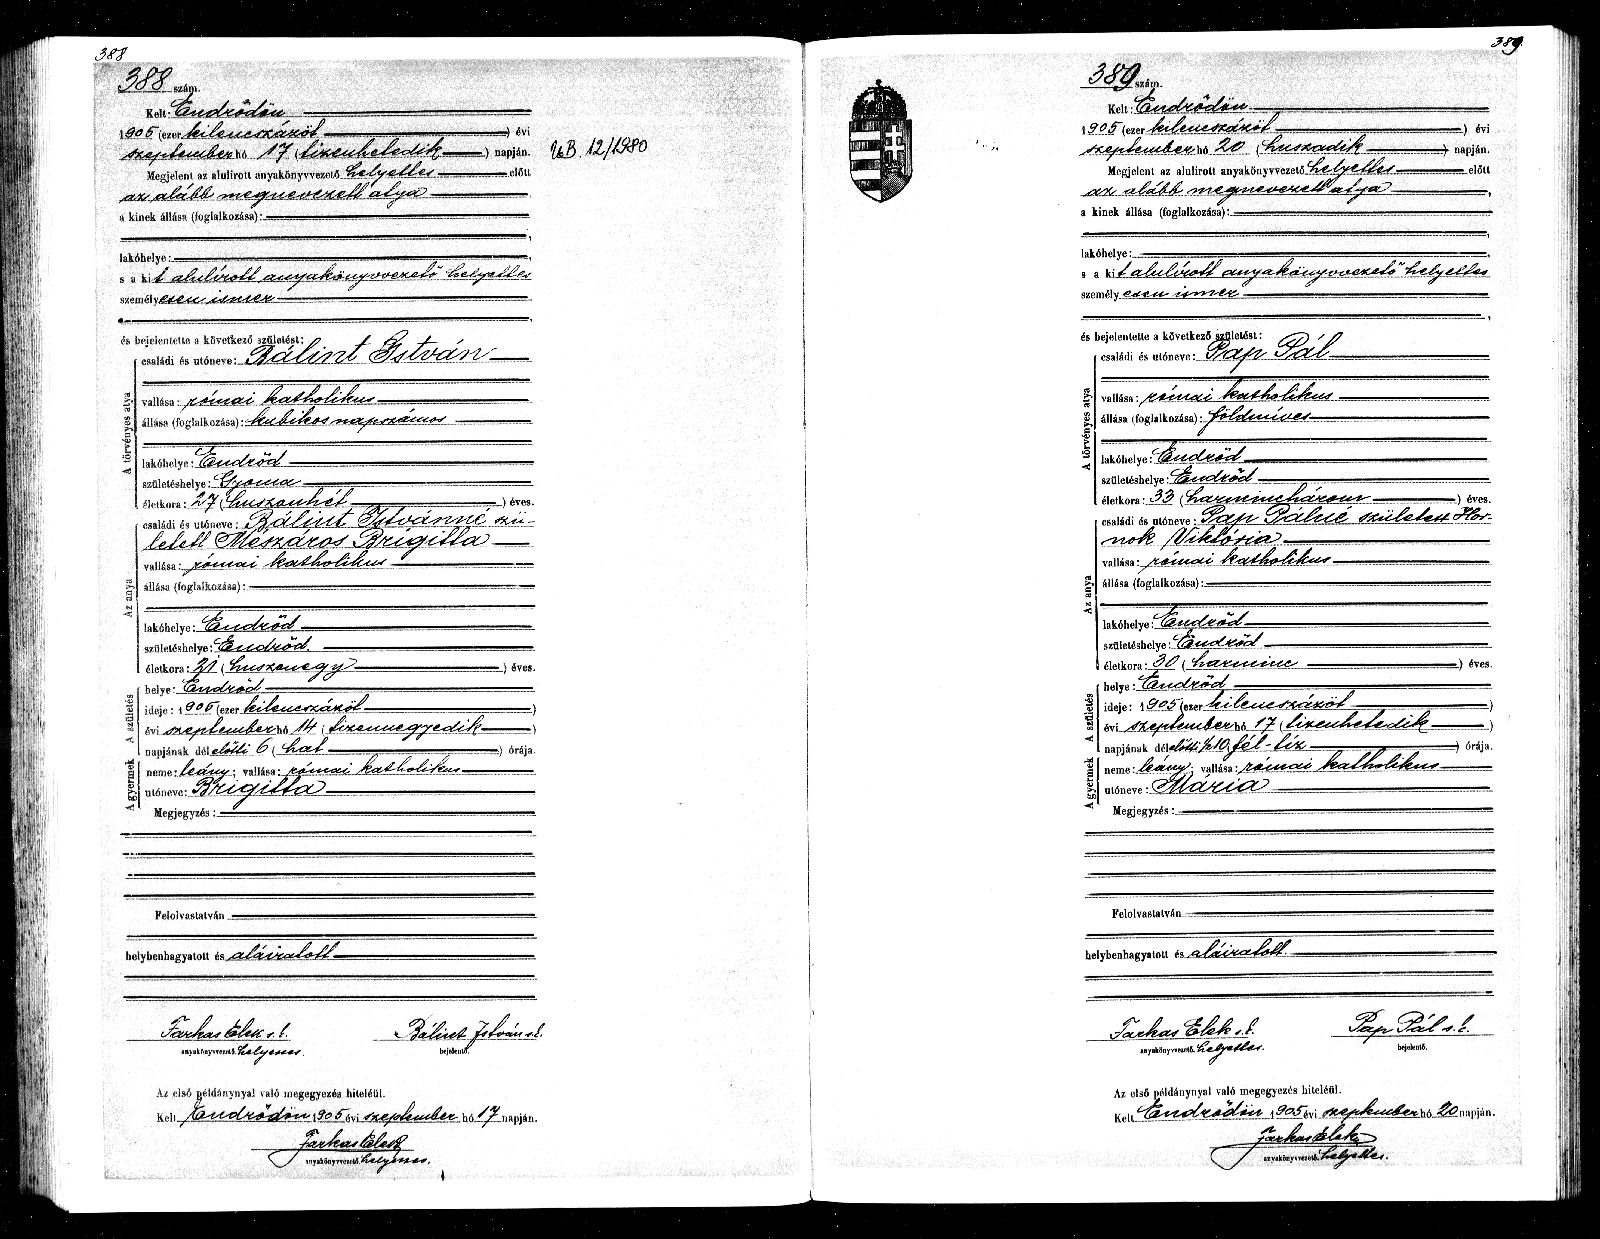 388
388 szám.
Kelt: Endrődön
1905 (ezer kilencszázöt) évi
szeptember hó 17 (tizenhetedik) napján.
12/1980
Megjelent az alulirott anyakönyvvezető helyettes előtt
az alább megnevezett atya
a kinek állása (foglalkozása):
lakóhelye:
s a kit alulírott anyakönyvvezető helyettes
személyesen ismer
és bejelentette a következő születést:
A törvényes atya
családi és utóneve: Bálint István
vallása: római katholikus
állása (foglalkozása): kubikos napszámos
lakóhelye: Endrőd
születéshelye: Gyoma
életkora: 27 (huszonhét) éves.
Az anya
családi és utóneve: Bálint Istvánné szü-
letett Mészáros Brigitta
vallása: római katholikus
állása (foglalkozása):
lakóhelye: Endrőd
születéshelye: Endrőd.
életkora: 21 (huszonegy) éves.
A születés
helye: Endrőd
ideje: 1905 (ezer kilencszázöt)
évi szeptember hó 14 (tizennegyedik)
napjának dél előtti 6 (hat) órája.
A gyermek
neme: leány; vallása: római katholikus
utóneve: Brigitta
Megjegyzés:
Felolvastatván
helybenhagyatott és aláiratott
Farkas Elek s. k. Bálint István s. k.
anyakönyvvezető. helyettes. bejelentő.
Az első példánynyal való megegyezés hiteléül.
Kelt Endrődön 1905 évi szeptember hó 17 napján.
Farkas Elek
anyakönyvvezető. helyettes.
389
389 szám.
Kelt: Endrődön
1905 (ezer kilencszázöt) évi
szeptember hó 20 (huszadik) napján.
Megjelent az alulirott anyakönyvvezető helyettes előtt
az alább megnevezett atya
a kinek állása (foglalkozása):
lakóhelye:
s a kit alulírott anyakönyvvezető helyettes
személyesen ismer
és bejelentette a következő születést:
A törvényes atya
családi és utóneve: Pap Pál
vallása: római katholikus
állása (foglalkozása): földmíves
lakóhelye: Endrőd
születéshelye: Endrőd
életkora: 33 (harminchárom) éves.
Az anya
családi és utóneve: Pap Pálné született Hor-
nok Viktória
vallása: római katholikus
állása (foglalkozása):
lakóhelye: Endrőd
születéshelye: Endrőd
életkora: 30 (harminc) éves.
A születés
helye: Endrőd
ideje: 1905 (ezer kilencszázöt)
évi szeptember hó 17 (tizenhetedik)
napjának dél előtti ½10 (fél-tíz) órája.
A gyermek
neme: leány; vallása: római katholikus
utóneve: Mária
Megjegyzés:
Felolvastatván
helybenhagyatott és aláiratott.
Farkas Elek s. k. Pap Pál s. k.
anyakönyvvezető. helyettes. bejelentő.
Az első példánynyal való megegyezés hiteléül.
Kelt Endrődön 1905 évi szeptember hó 20 napján.
Farkas Elek
anyakönyvvezető. helyettes.